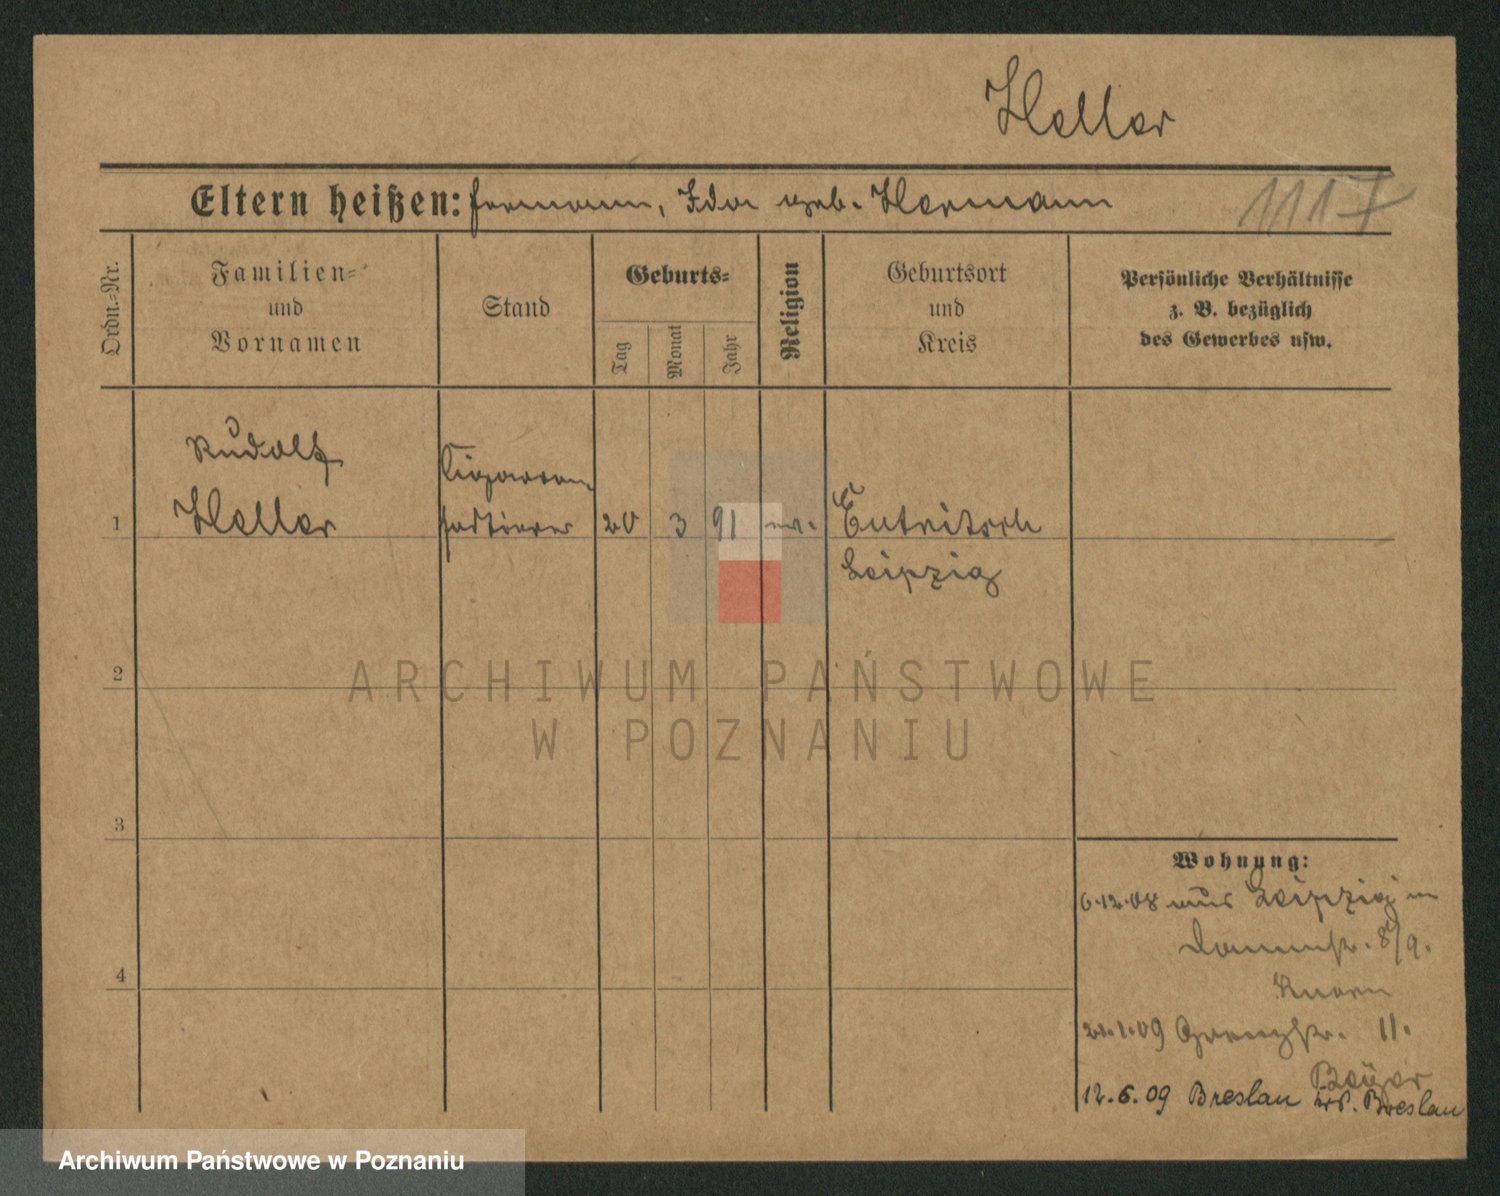 Heller
Eltern heißen: Hermann, Ida geb. Hermann
1117
Ordn.-Nr.
Familien- und Vornamen
Stand
Geburts-
Tag
Monat
Jahr
Religion
Geburtsort und Kreis
Persönliche Verhältnisse
z. B. bezüglich
des Gewerbes usw.
Rudolf
Heller
Cigarren
sortierer
1
20 3 91 ev.
Eutritzsch
Leipzig
2
3
4
Wohnung:
6.12.08 aus Leipzig in
Dammstr. 8/9.
21.1.09 Grenzstr. 11.
12.6.09 Breslau Krs. Breslau
ARCHIWUM PAŃSTWOWE
W POZNANIU
Archiwum Państwowe w Poznaniu